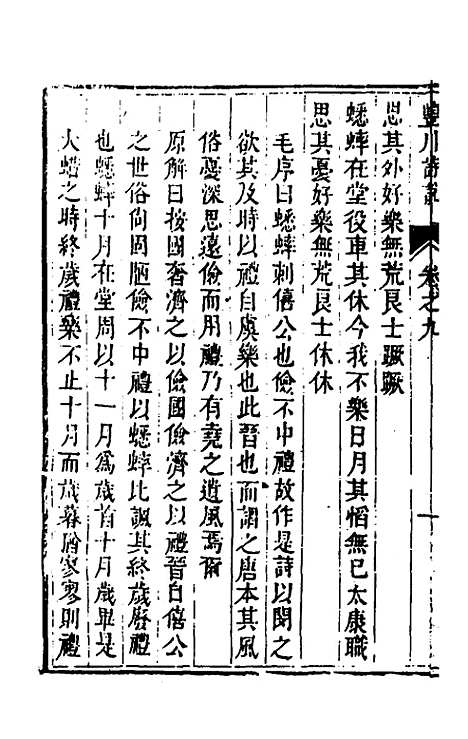 豐川詩說 卷之九 一
思其外好樂無荒良士蹶蹶
蟋蟀在堂役車其休今我不樂日月其慆無已太康職
思其憂好樂無荒良士休休
毛序曰蟋蟀刺僖公也儉不中禮故作是詩以閔之
欲其及時以禮自虞樂也此晉也而謂之唐本其風
俗憂深思遠儉而用禮乃有堯之遺風焉爾
原解曰按國奢濟之以儉國儉濟之以禮晉自僖公
之世俗尚固陋儉不中禮以蟋蟀比諷其終歲廢禮
也蟋蟀十月在堂周以十一月爲歲首十月歲畢是
大蜡之時終歲禮樂不止十月而歲暮猶寥寥則禮